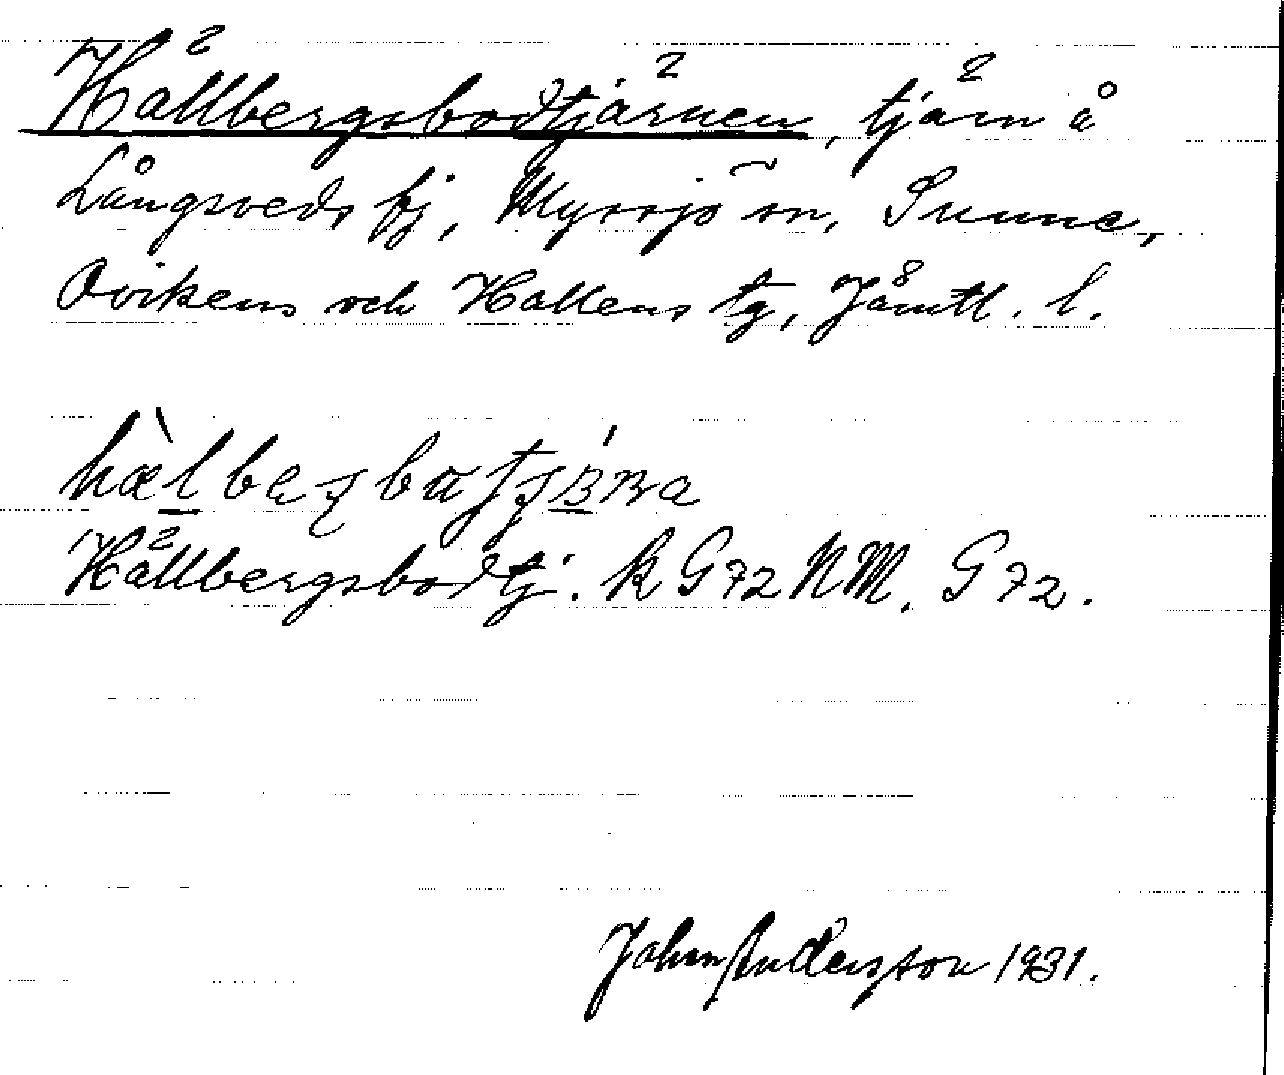 Hällbergsbodtjärnen, tjärn å
Långsveds fj, Myssjö sn, Sunne,
Ovikens och Hallens tg, Jämtl. l.
Hällbergsbodtj. k G72 NM, G72.
John Andersson 1931.